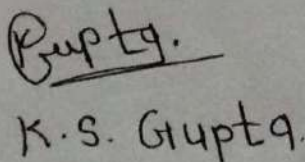 Gupta.
K. S. Gupta.